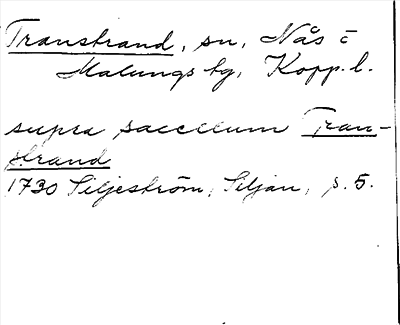 Transtrand, sn, Nås o
Malungs tg, Kopp. l.
supra sacellum Tran-
strand
1730 Siljeström, Siljan, s. 5.